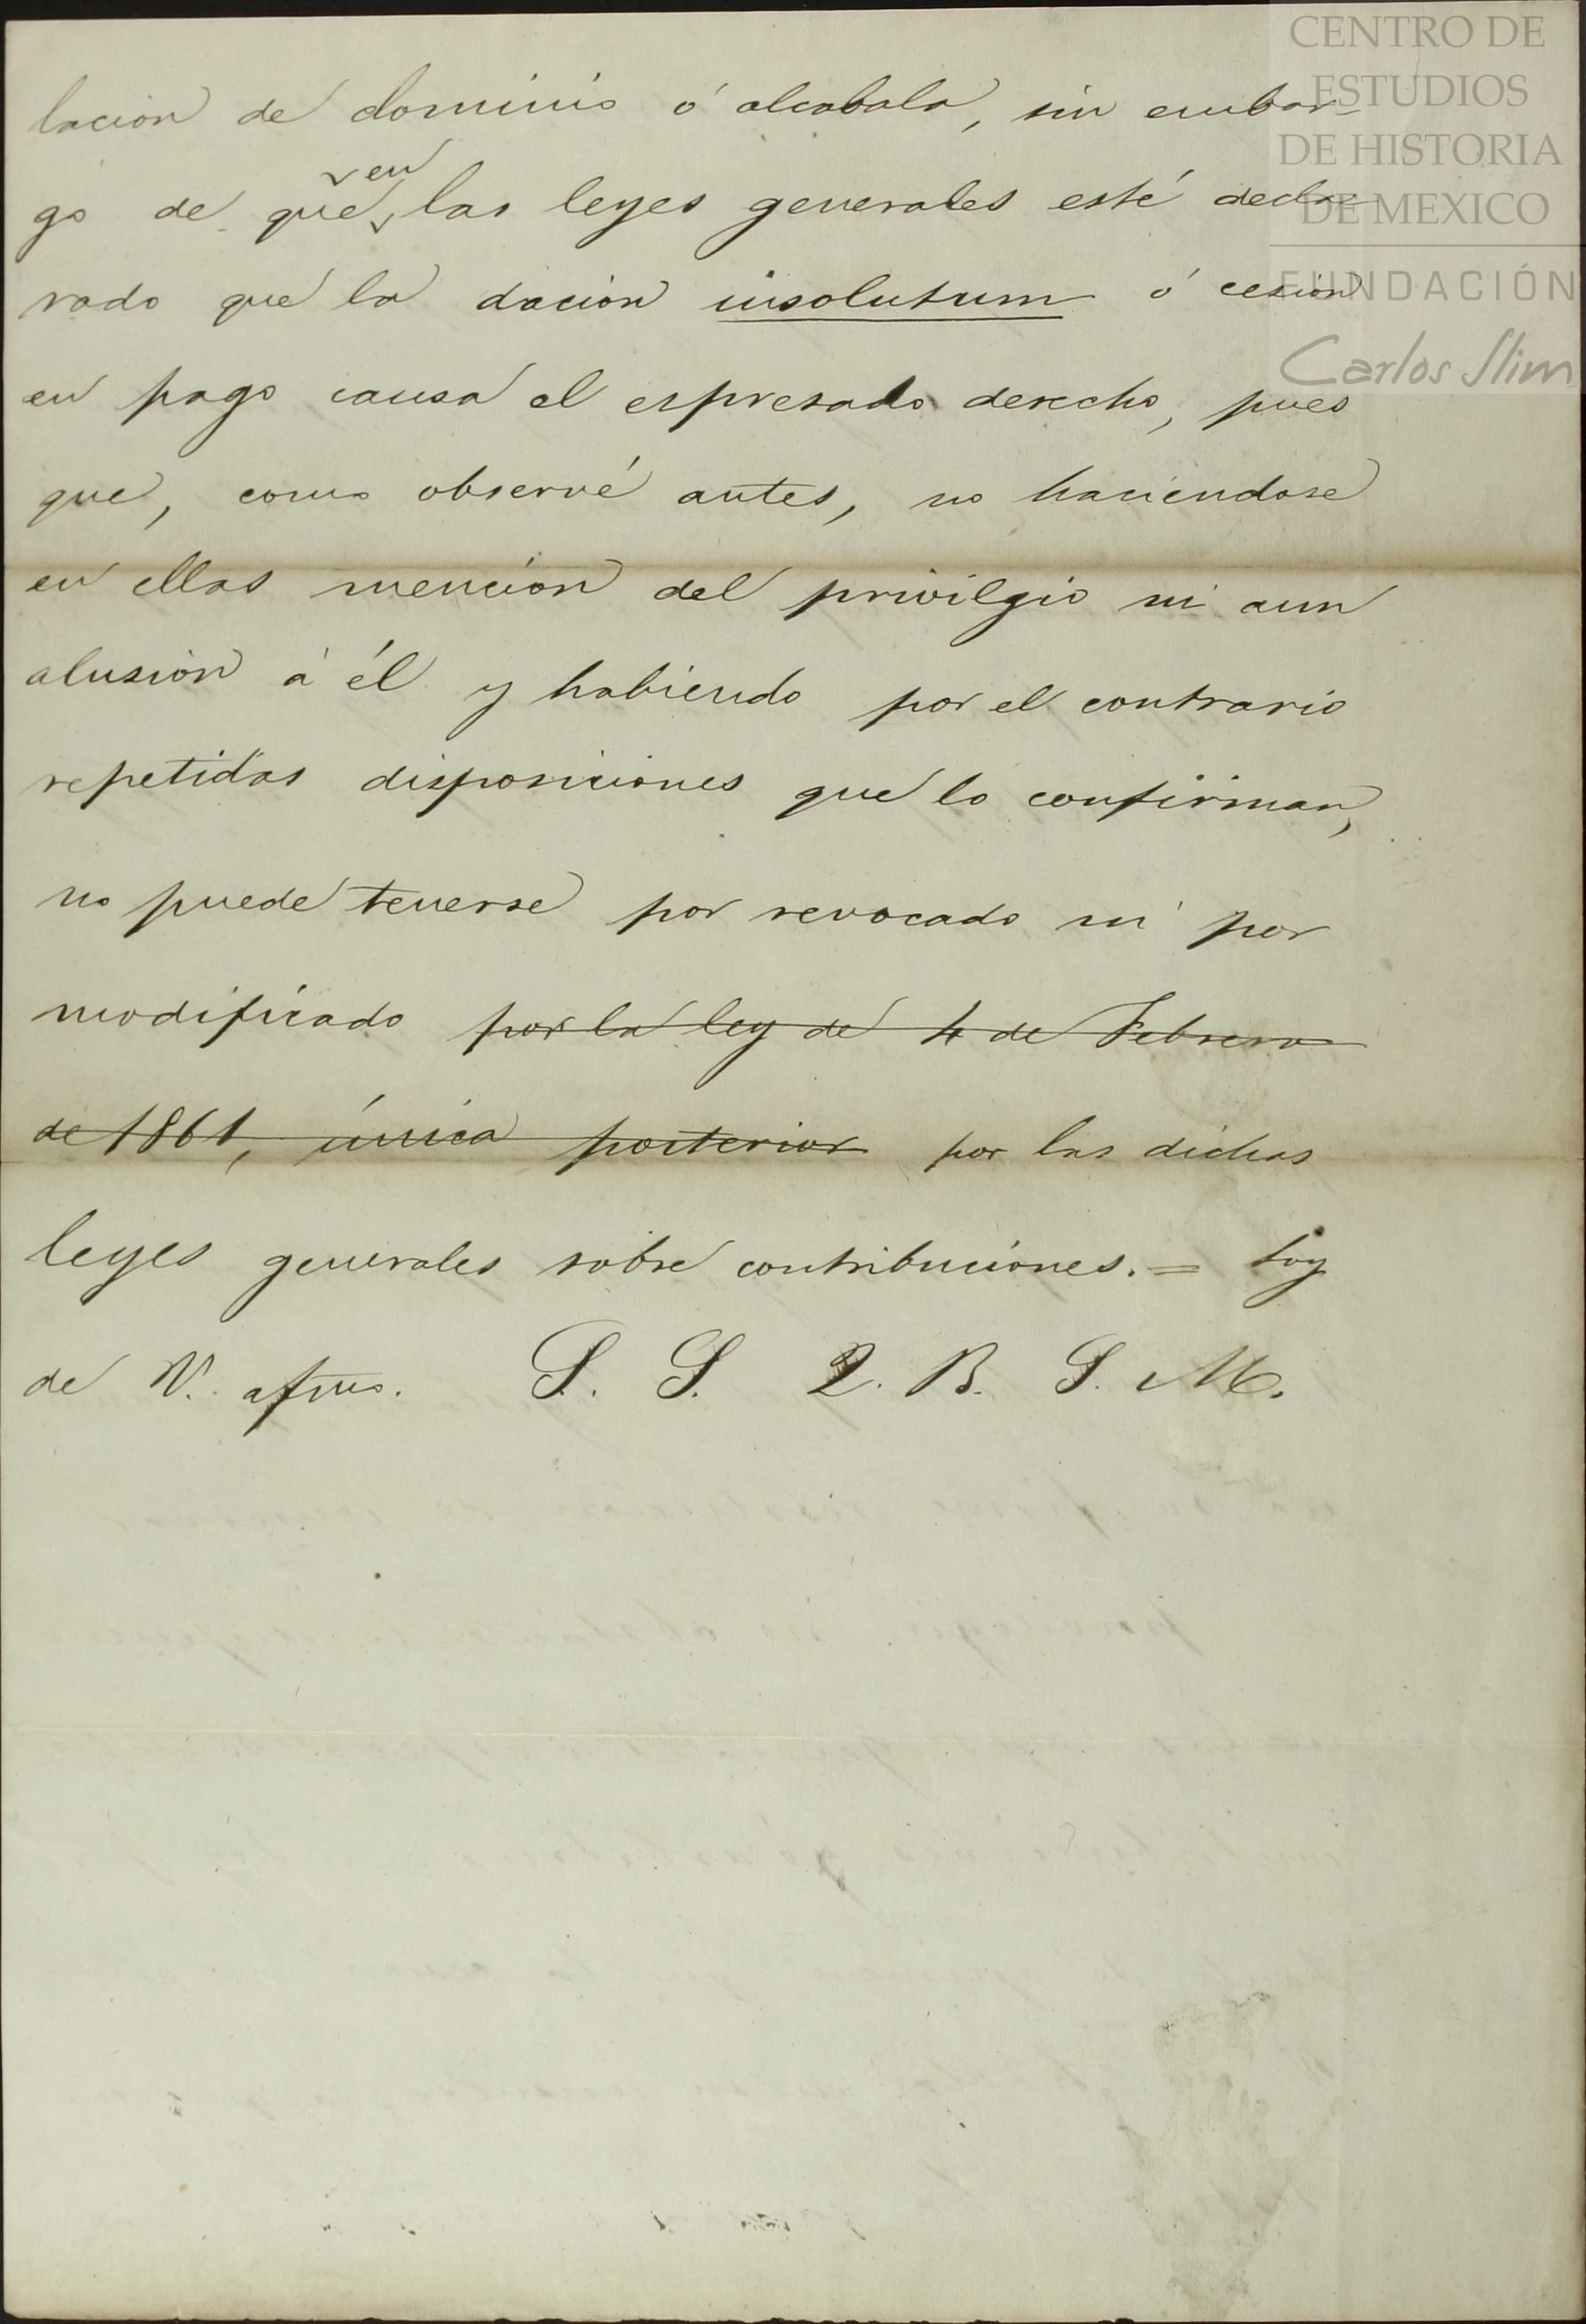 CENTRO DE
ESTUDIOS
DE HISTORIA
DE MEXICO
FUNDACIÓN
Carlos Slim
lacion de dominio ó alcabala, sin embar-
go de que en las leyes generales esté decla-
rado que la dacion insolutum ó cesion
en pago causa el espresado derecho, pues
que, como observé antes, no haciendose
en ellas mencion del privilgio ni aun
alusion á él y habiendo por el contrario
repetidas disposiciones que lo confirman,
no puede tenerse por revocado ni por
modificado por la ley de 4 de Febrero
de 1861, única posterior por las dichas
leyes generales sobre contribuciones. = Soy
de V. afmo. S. S. Q. B. S. M.